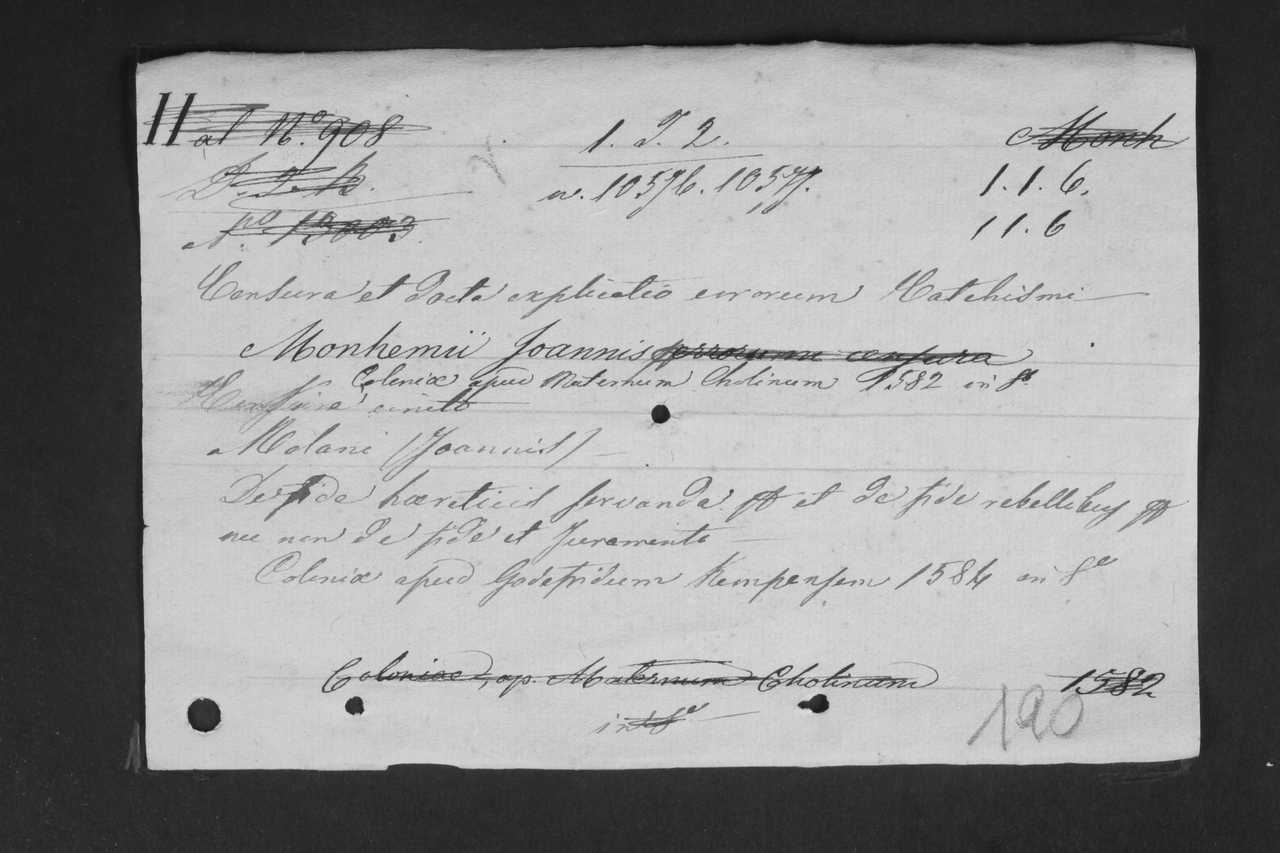 H al N.º 908 1. T. 2. Monh
D. 2. b. n. 10576. 1057. 1. 1. 6.
N.º 13003 11. 6
Censura et docta explicatio errorum Catechismi
Monhemii Joannis errorum censura
Coloniæ apud Maternum Cholinum 1582 in 8º
Molani (Joannis)
De fide hæreticis servanda et de fide rebellibus
nec non de fide et Juramento
Coloniæ apud Godefridum Kempensem 1584 in 8º
Coloniae, ap. Maternum Cholinum 1582
in 8º
190